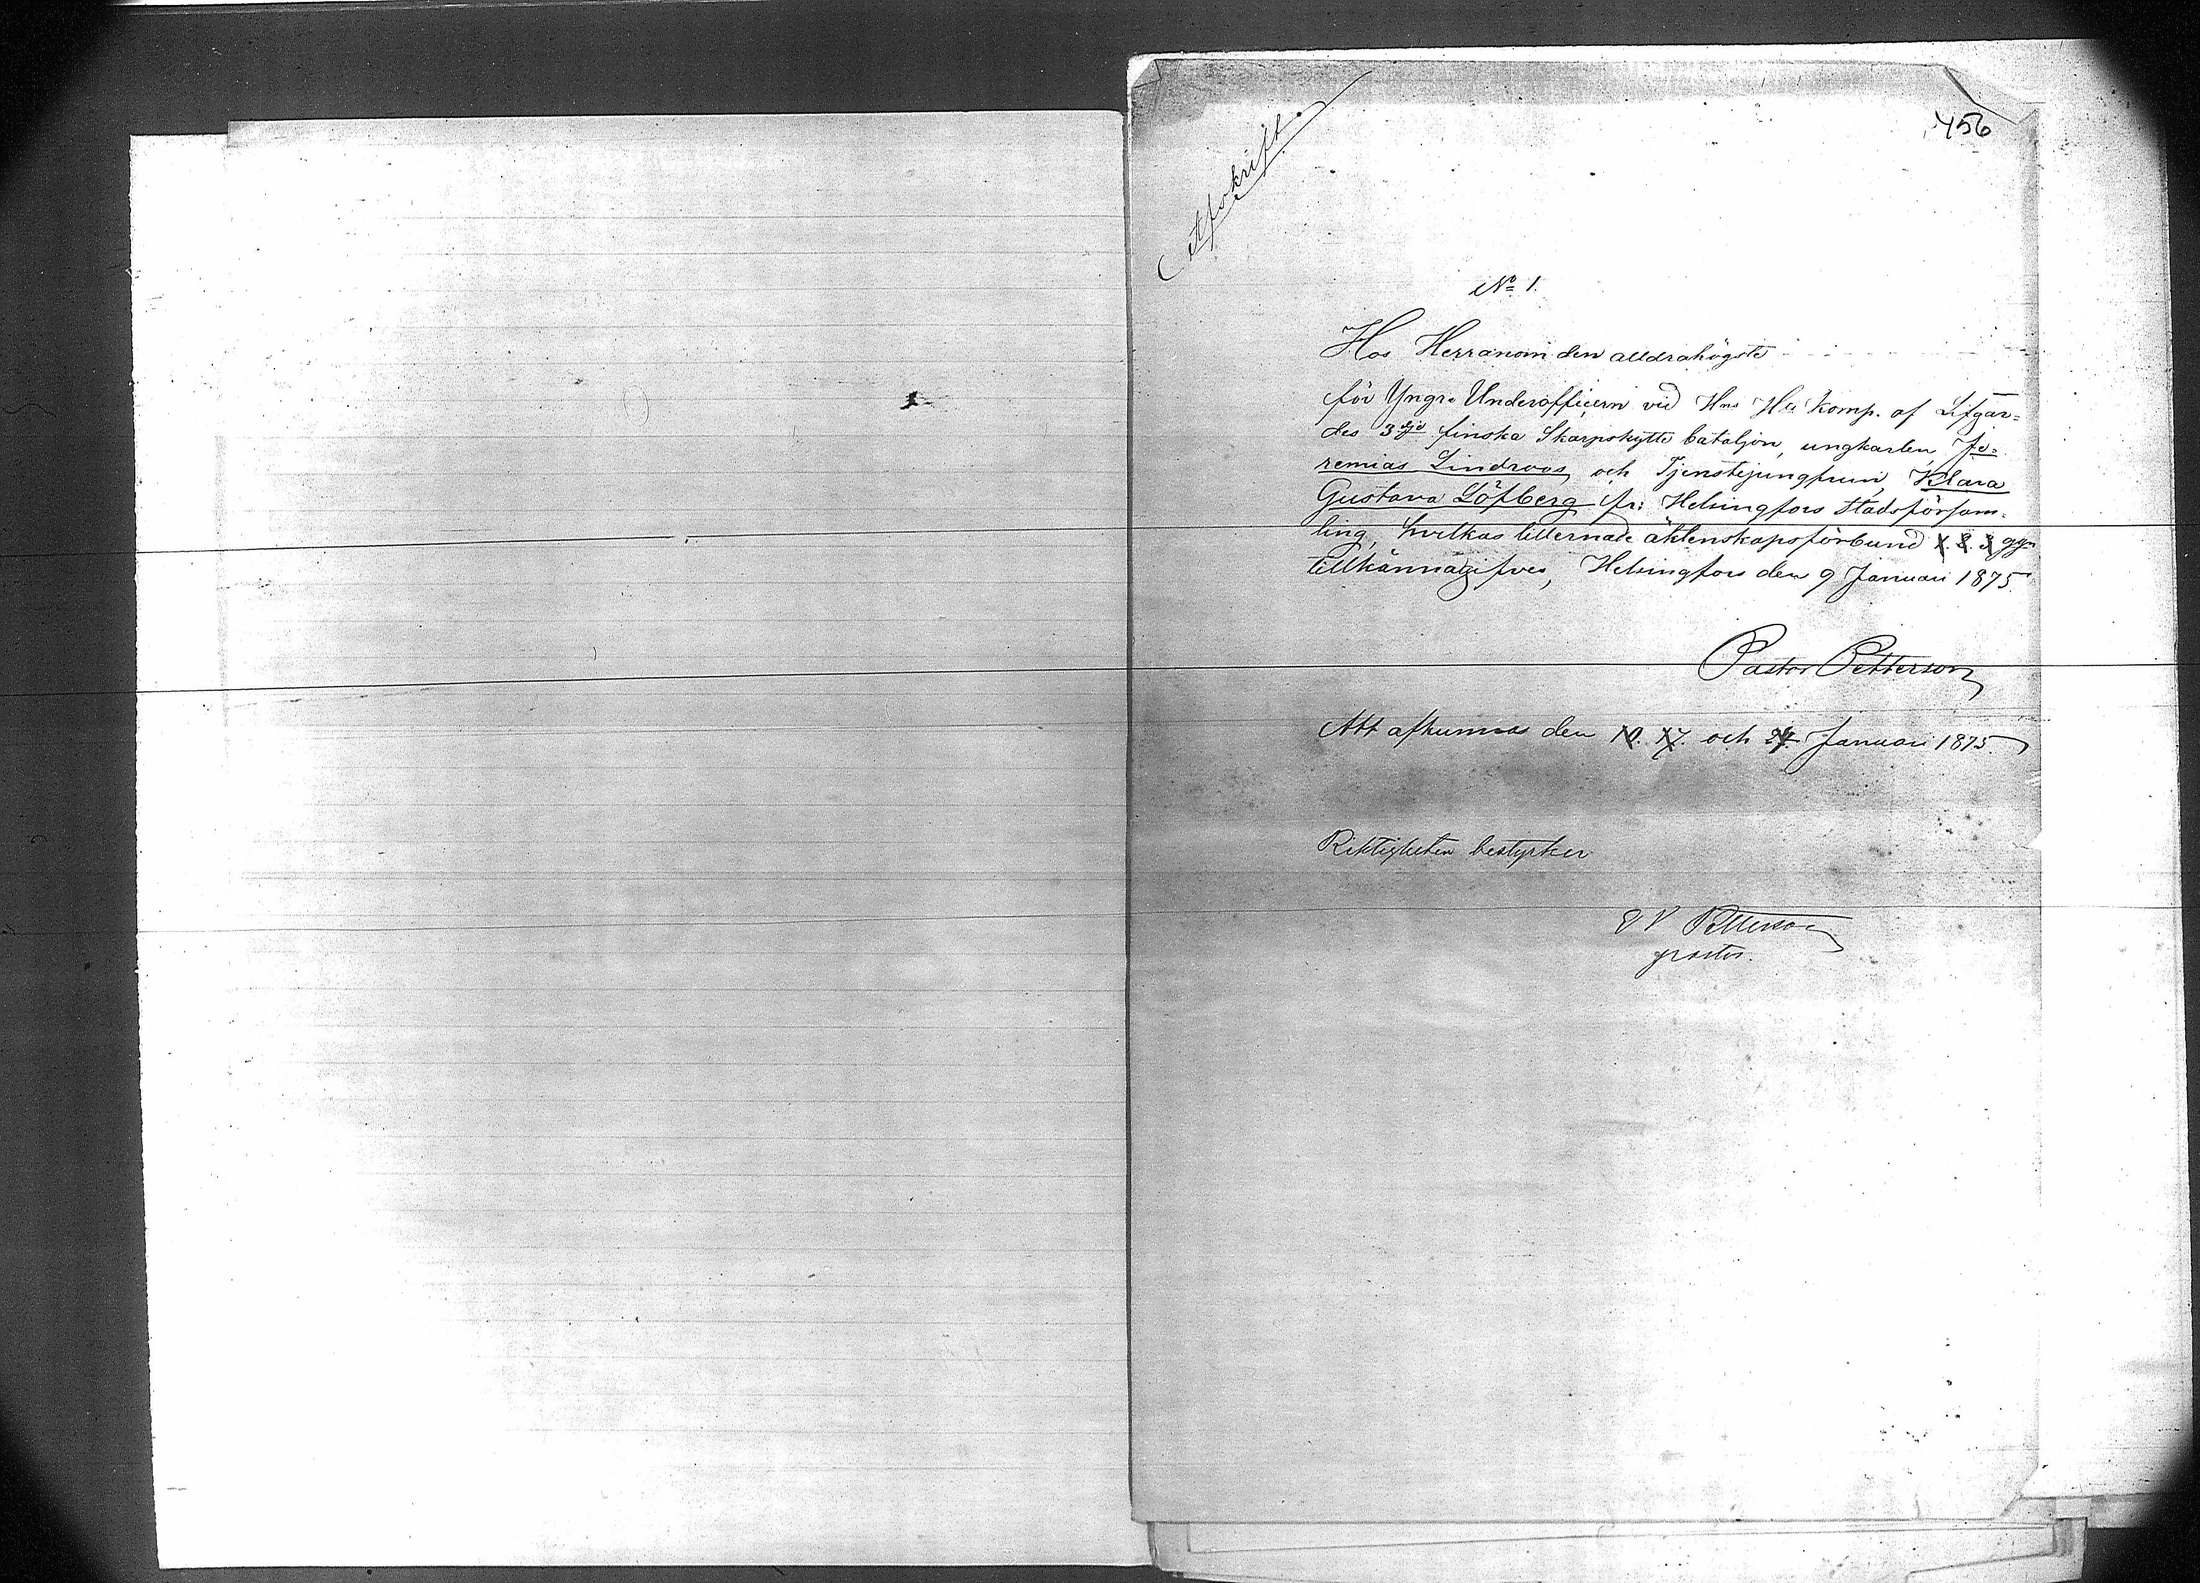 456
Afskrift.
No 1.
Hos Herranom den alldrahögste
för Yngre Underofficern vid Komp. af Lifgar=
des 3dje finska Skarpskytte bataljon, ungkarlen Je=
remias Lindroos, och Tjenstejungfrun, Klara
Gustava Löfberg fr: Helsingfors Stadsförsam-
ling, hvilkas tillernade äktenskapsförbund 1. 2. 3 ggn
tillkännagifves, Helsingfors den 9 Januari 1875.
Pastor Petterson
Att afkunnas den 10. 17. och 24. Januari 1875.
Riktigheten bestyrker
Petterson
pastor.